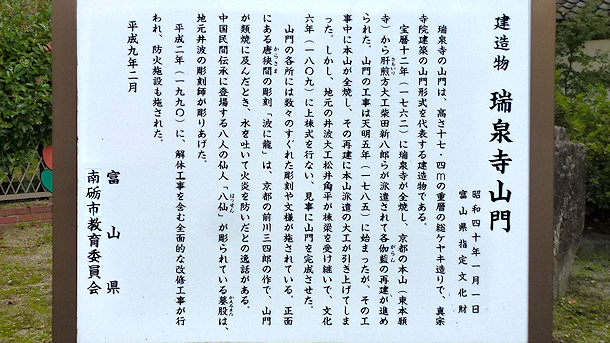 建造物 瑞泉寺山門
昭和四十年一月一日
富山県指定文化財
瑞泉寺の山門は、高さ十七・四mの重層の総ケヤキ造りで、真宗
寺院建築の山門形式を代表する建造物である。
宝暦十二年(一七六二)に瑞泉寺が全焼し、京都の本山(東本願
寺)から肝煎方大工柴田新八郎らが派遣されて各伽藍の再建が進め
られた。山門の工事は天明五年(一七八五)に始まったが、その工
事中に本山が全焼し、その再建に本山派遣の大工が引き上げてしま
った。しかし、地元の井波大工松井角平が棟梁を受け継いで、文化
六年(一八〇九)に上棟式を行ない、見事に山門を完成させた。
山門の各所には数々のすぐれた彫刻や文様が施されている。正面
にある唐狭間の彫刻「波に龍」は、京都の前川三四郎の作で、山門
が類焼に及んだとき、水を吐いて火炎を防いだとの逸話がある。
中国民間伝承に登場する八人の仙人「八仙」が彫られている蟇股は、
地元井波の彫刻師が彫りあげた。
平成二年(一九九〇)に、解体工事を含む全面的な改修工事が行
われ、防火施設も施された。
平成九年二月
富山県
南砺市教育委員会